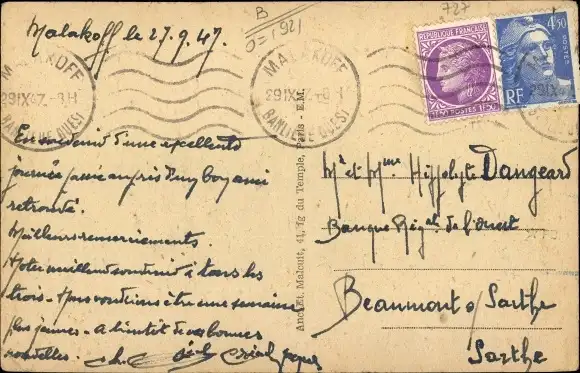 Malakoff le 27.9.47.
B
0=1921
727
MALAKOFF
29 IX 47 - 8 H
BANLIEUE OUEST
MALAKOFF
29 IX 47 - 8 H
BANLIEUE OUEST
RÉPUBLIQUE FRANÇAISE
POSTES
4F50
POSTES
RF
En souvenir d'une excellente
journée passée auprès d'un bon ami
retrouvé.
Meilleurs remerciements.
Notre meilleur souvenir à tous les
trois -
plus jeunes - A bientôt de vos bonnes
nouvelles.
41, fg du Temple, Paris - E.M.
Mr et Mme Hippolyte Dangeard
Banque Régale de l'Ouest
Beaumont s/ Sarthe
Sarthe